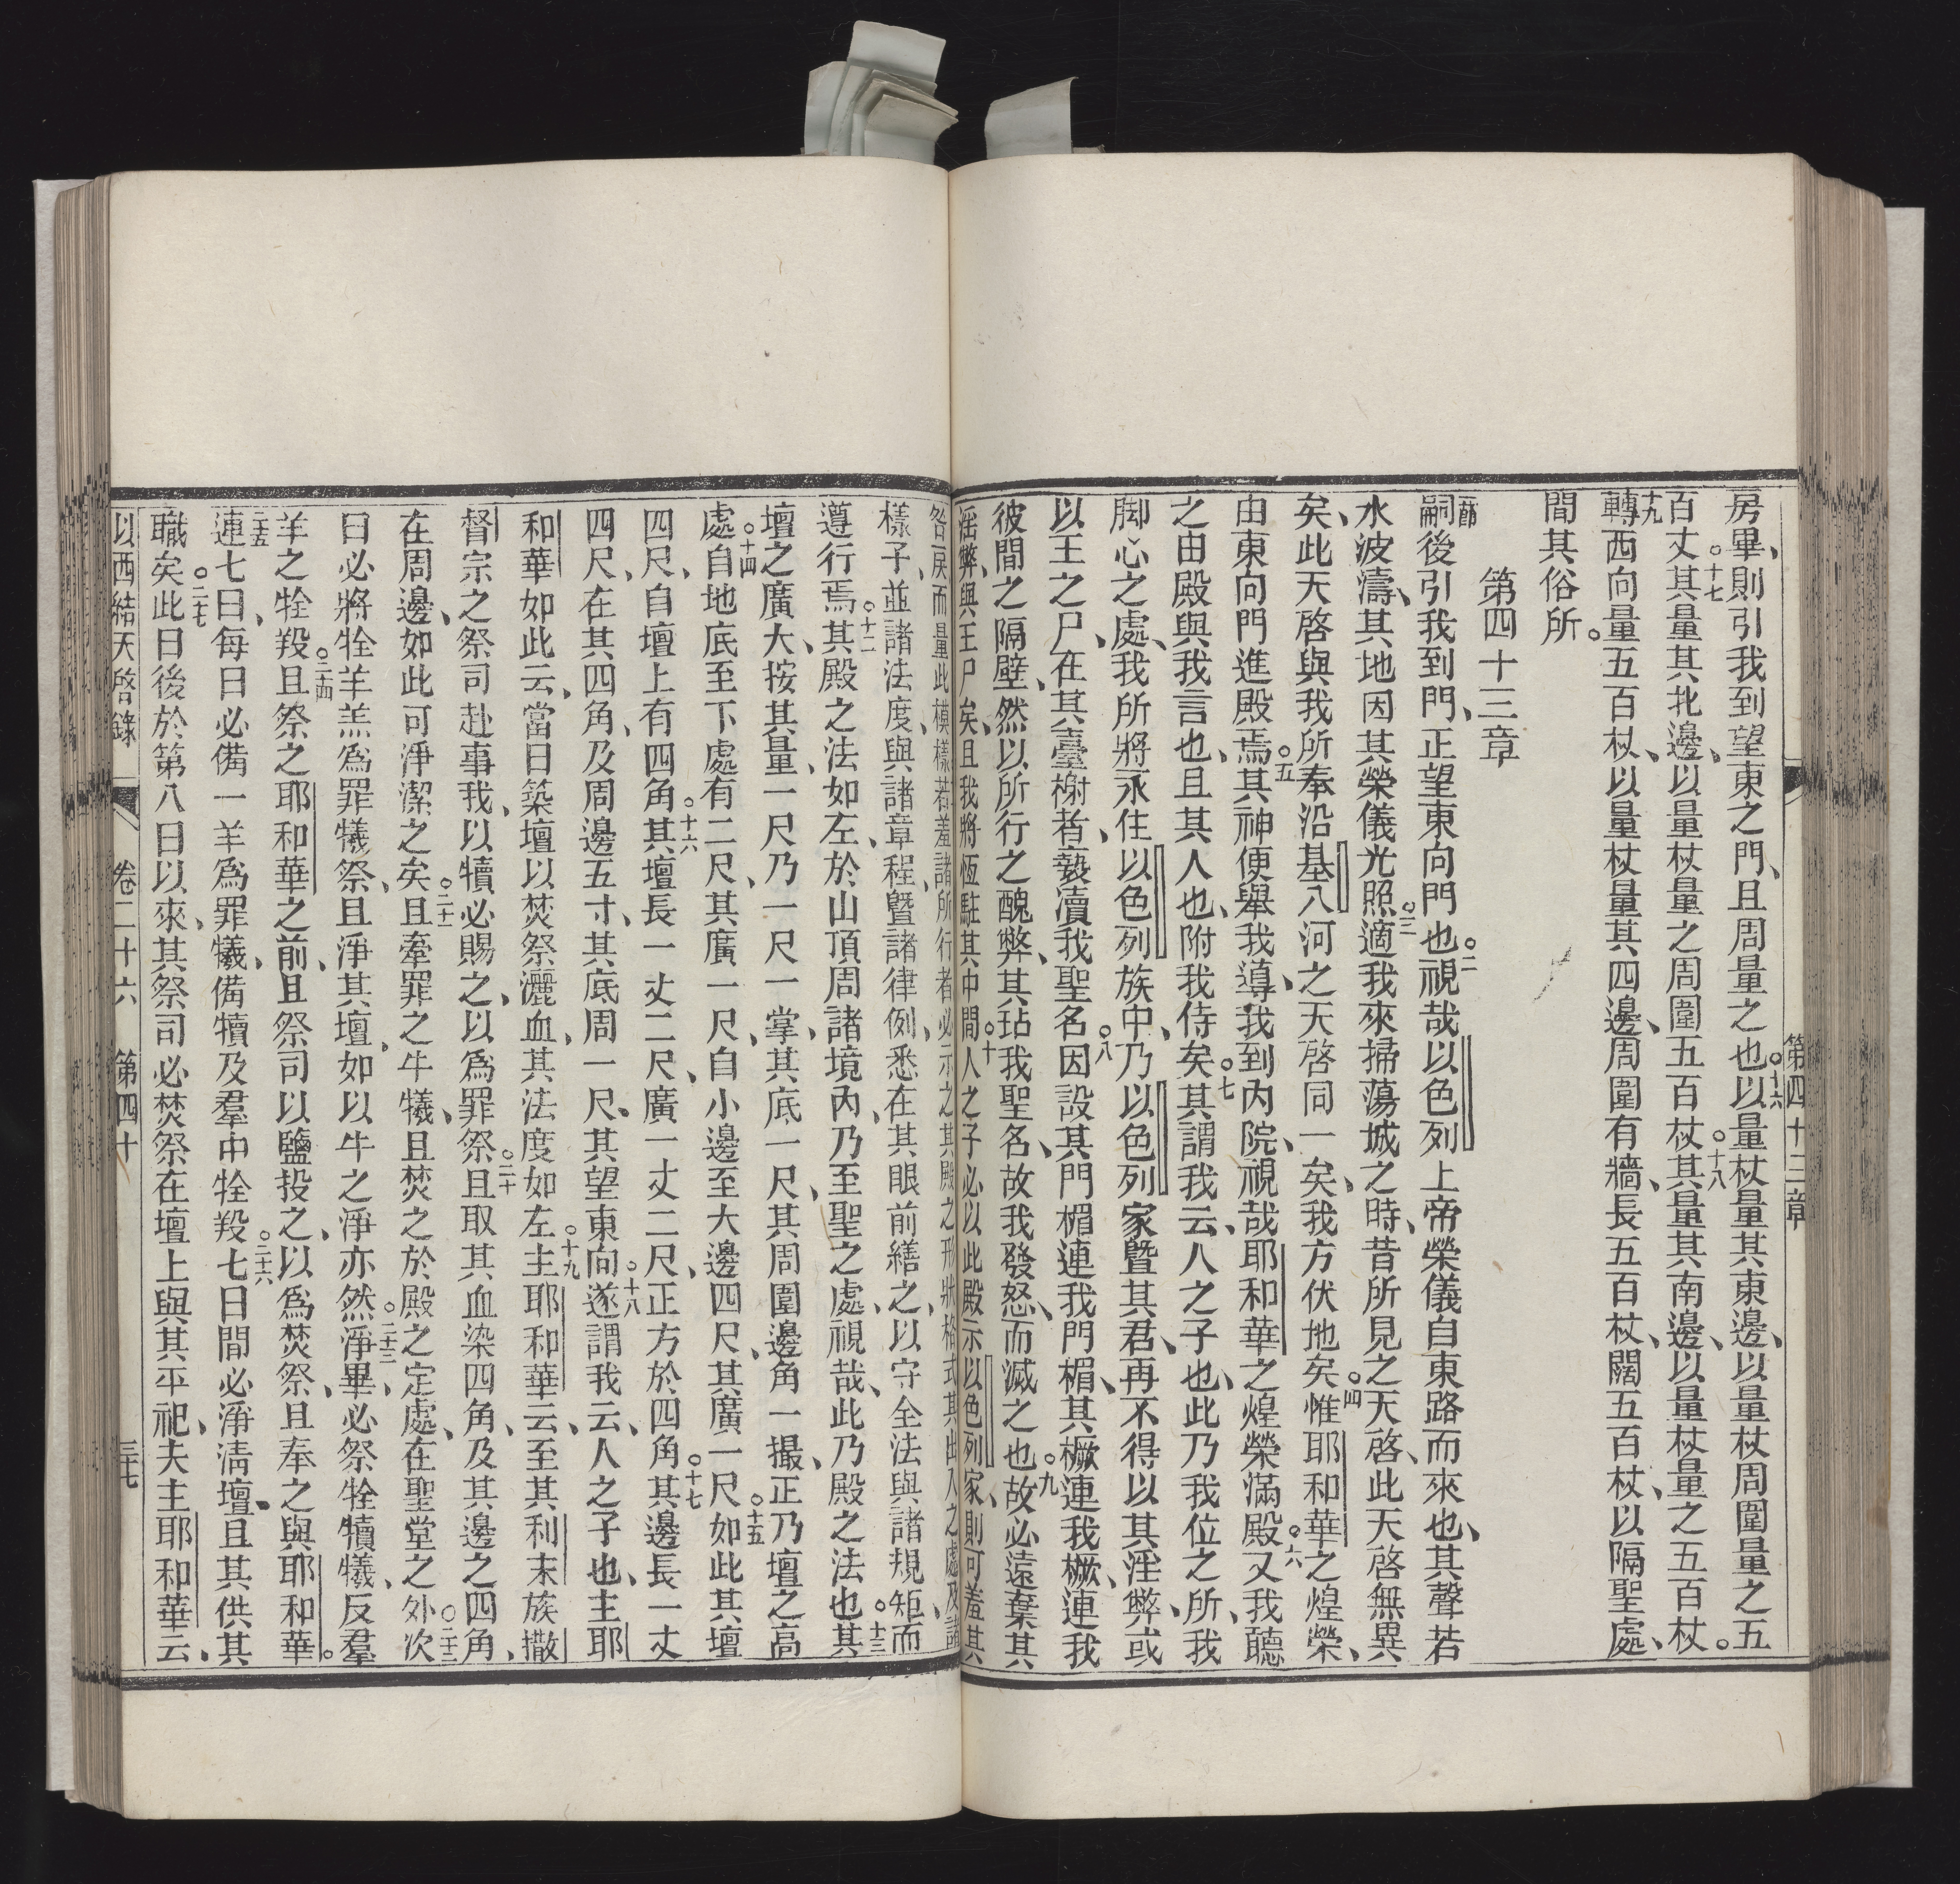 第四十三章
房畢、則引我到望東之門、且周量之也。十六以量杖量其東邊、以量杖周圍量之五
百丈。十七其量其北邊、以量杖量之周圍五百杖。十八其量其南邊、以量杖量之五百杖。
十九轉西向量五百杖、以量杖量其四邊、周圍有牆、長五百杖、闊五百杖、以隔聖處、
間其俗所。
第四十三章
嗣後引我到門、正望東向門也。二視哉以色列上帝榮儀自東路而來也、其聲若
水波濤、其地因其榮儀光照。三適我來掃蕩城之時、昔所見之天啓、此天啓無異
矣、此天啓與我所奉沿基八河之天啓同一矣、我方伏地矣。四惟耶和華之煌榮、
由東向門進殿焉。五其神便舉我、導我到內院、視哉、耶和華之煌榮滿殿。六又我聽
之由殿與我言也、且其人也、附我侍矣。七其謂我云、人之子也、此乃我位之所、我
脚心之處、我所將永住以色列族中、乃以色列家曁其君、再不得以其淫弊、或
以王之尸、在其臺榭者、褻瀆我聖名。八因設其門楣連我門楣、其橛連我橛、連我
彼間之隔壁、然以所行之醜弊、其玷我聖名、故我發怒、而滅之也。九故必遠棄其
淫弊、與王尸矣、且我將恆駐其中間。十人之子必以此殿示以色列家、則可羞其
咎戾而量此模樣若羞諸所行者必示之其殿之形狀格式其出入之處及諸
樣子、並諸法度、與諸章程、曁諸律例、悉在其眼前繕之、以守全法與諸規矩、而
遵行焉。十二其殿之法如左、於山頂周諸境內、乃至聖之處、視哉、此乃殿之法也。十三其
壇之廣大、按其量、一尺乃一尺一掌、其底一尺、其周圍邊角一撮、正乃壇之高
處。十四自地底至下處有二尺、其廣一尺、自小邊至大邊四尺、其廣一尺。十五如此其壇
四尺、自壇上有四角。十六其壇長一丈二尺、廣一丈二尺、正方於四角。十七其邊長一丈
四尺、在其四角、及周邊五寸、其底周一尺、其望東向。十八遂謂我云、人之子也、主耶
和華如此云、當日築壇以焚祭灑血、其法度如左。十九主耶和華云、至其利未族撒
督宗之祭司赴事我、以犢必賜之、以爲罪祭。二十且取其血染四角、及其邊之四角、
在周邊、如此可淨潔之矣。二十一且牽罪之牛犧、且焚之於殿之定處、在聖堂之外。二十二次
日必將牷羊羔爲罪犧祭、且淨其壇、如以牛之淨亦然。二十三淨畢、必祭牷犢犧、反羣
羊之牷羖。二十四且祭之耶和華之前、且祭司以鹽投之、以爲焚祭、且奉之與耶和華。
二十五連七日、每日必備一羊爲罪犧、備犢及羣中牷羖。二十六七日間必淨淸壇、且其供其
職矣。二十七此日後於第八日以來、其祭司必焚祭在壇上與其平祀、夫主耶和華云、
以西結天啓錄 卷二十六 第四十 三十七